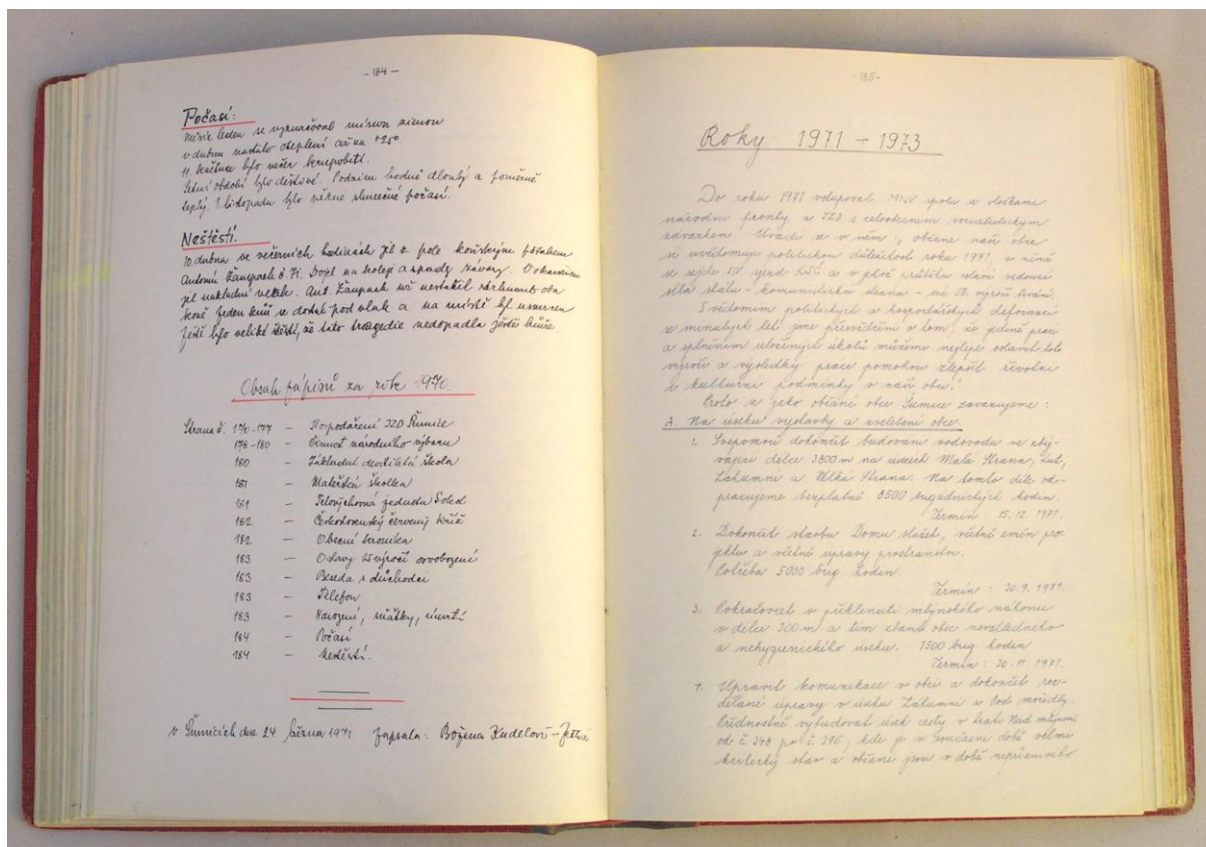 - 184 -
Počasí:
Měsíc leden se vyznačoval mírnou zimou
v dubnu nastalo oteplení až na +25°
11. května bylo večer krupobití.
Letní období bylo deštivé. Podzim hodně dlouhý a poměrně
teplý. 1. listopadu bylo pěkné slunečné počasí.
Neštěstí.
10. dubna ve večerních hodinách jel z pole koňským potahem
Antonín č. 71. Dojel na koleje a spadly závory. V okamžiku
jel nákladní vlak. Ant. již nestačil strhnout oba
koně. Jeden kůň se dostal pod vlak a na místě byl usmrcen
Ještě bylo veliké štěstí, že tato tragedie nedopadla ještě hůře.
Obsah zápisů za rok 1970.
Strana č. 170-177 — Hospodaření JZD Šumice
178-180 — Činnost národního výboru
180 — Základní devítiletá škola
181 — Mateřská školka
181 — Tělovýchovná jednota Sokol
182 — Československý červený kříž
182 — Obecní kronika
183 — Oslavy 25 výročí osvobození
183 — Beseda s důchodci
183 — Telefon
183 — Narození, sňatky, úmrtí
184 — Počasí
184 — Neštěstí.
v Šumicích dne 24. března 1971 zapsala: Božena Kudelová -
- 185 -
Roky 1971 - 1973
Do roku 1971 vstupoval MNV spolu se složkami
národní fronty a JZD s celoobecním socialistickým
závazkem. Uvádí se v něm, občané naší obce
si uvědomují politickou důležitost roku 1971, v němž
se sejde XIV. sjezd KSČ a v jehož průběhu oslaví vedoucí
síla státu - komunistická strana - své 50. výročí trvání.
S vědomím politických a hospodářských deformací
z minulých let jsme přesvědčeni o tom, že jedině prací
a splněním uložených úkolů můžeme nejlépe oslavit toto
výročí a výsledky práce pomohou zlepšit životní
i kulturní podmínky v naší obci."
Proto se jako občané obce Šumice zavazujeme:
A. Na úseku výstavby a zvelebení obce.
1. Svépomocí dokončit budování vodovodu ve zbý-
vající délce 3800 m na úsecích Malá Strana, Žleb,
Záhumní a Velká Strana. Na tomto díle od-
pracujeme bezplatně 8500 brigádnických hodin.
Termín: 15.12.1971.
2. Dokončit stavbu Domu služeb, včetně změn pro-
jektu a včetně úpravy prostranství.
Potřeba 5000 brig. hodin.
Termín: 30.9.1971.
3. Pokračovat v překlenutí mlýnského náhonu
v délce 300 m a tím zbavit obec nevzhledného
a nehygienického úseku. 1500 brig. hodin
Termín: 30.11.1971.
4. Upravit komunikace v obci a dokončit roz-
dělané úpravy v úseku Záhumní a Pod
Přednostně vybudovat úsek cesty v trati Nad mlýnem
od č. 348 po č. 396, kde je v současné době velmi
kritický stav a občané jsou v době nepříznivého